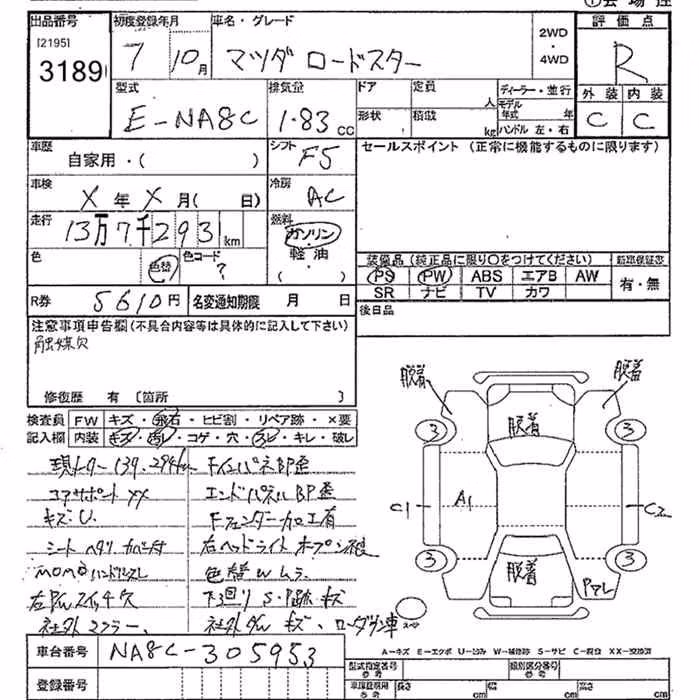 ①会場控
出品番号 初度登録年月 車名・グレード 2WD・4WD 評価点
[2195]
3189
7 10月 マツダ ロードスター R
型式 排気量 ドア 定員 人 ディーラー・並行
モデル年式 年 外装 内装
E-NA8C 1.83 CC 形状 積載 kg ハンドル 左・右 C C
車歴 自家用・( ) シフト F5 セールスポイント (正常に機能するものに限ります)
車検 X年X月(日) 冷房 AC
走行 13万7千293km 燃料 ガソリン 軽油
色 色替 色コード ?
装備品 (純正品に限り○をつけてください) 新車保証書
PS PW ABS エアB AW 有・無
SR ナビ TV カワ
R券 5610円 名変通知期限 月 日 後日品
注意事項申告欄(不具合内容等は具体的に記入して下さい)
触媒欠
修復歴 有 〔箇所 〕
検査員 FW キズ・飛石・ヒビ割・リペア跡・×要
記入欄 内装 キズ・汚レ・コゲ・穴・スレ・キレ・破レ
脱着 脱着
脱着
3 3
C1 A1 C2
3 3
脱着 Pアレ
現メーター139,294km FインパネBP歪
コアサポートXX エンドパネルBP歪
キズ.U. Fフェンダー加工有
シートヘタリ カバー付 右ヘッドライト
MOMOハンドルスレ 色替wムラ
左PWスイッチ欠 下回りS・P跡キズ
社外マフラー、 社外 キズ、ローダウン車
A-キズ E-エクボ U-凹み W-補修跡 S-サビ C-腐食 XX-交換済
車台番号 NA8C-305953
型式指定番号 類別区分番号
登録番号 長さ cm 幅 cm 高さ cm